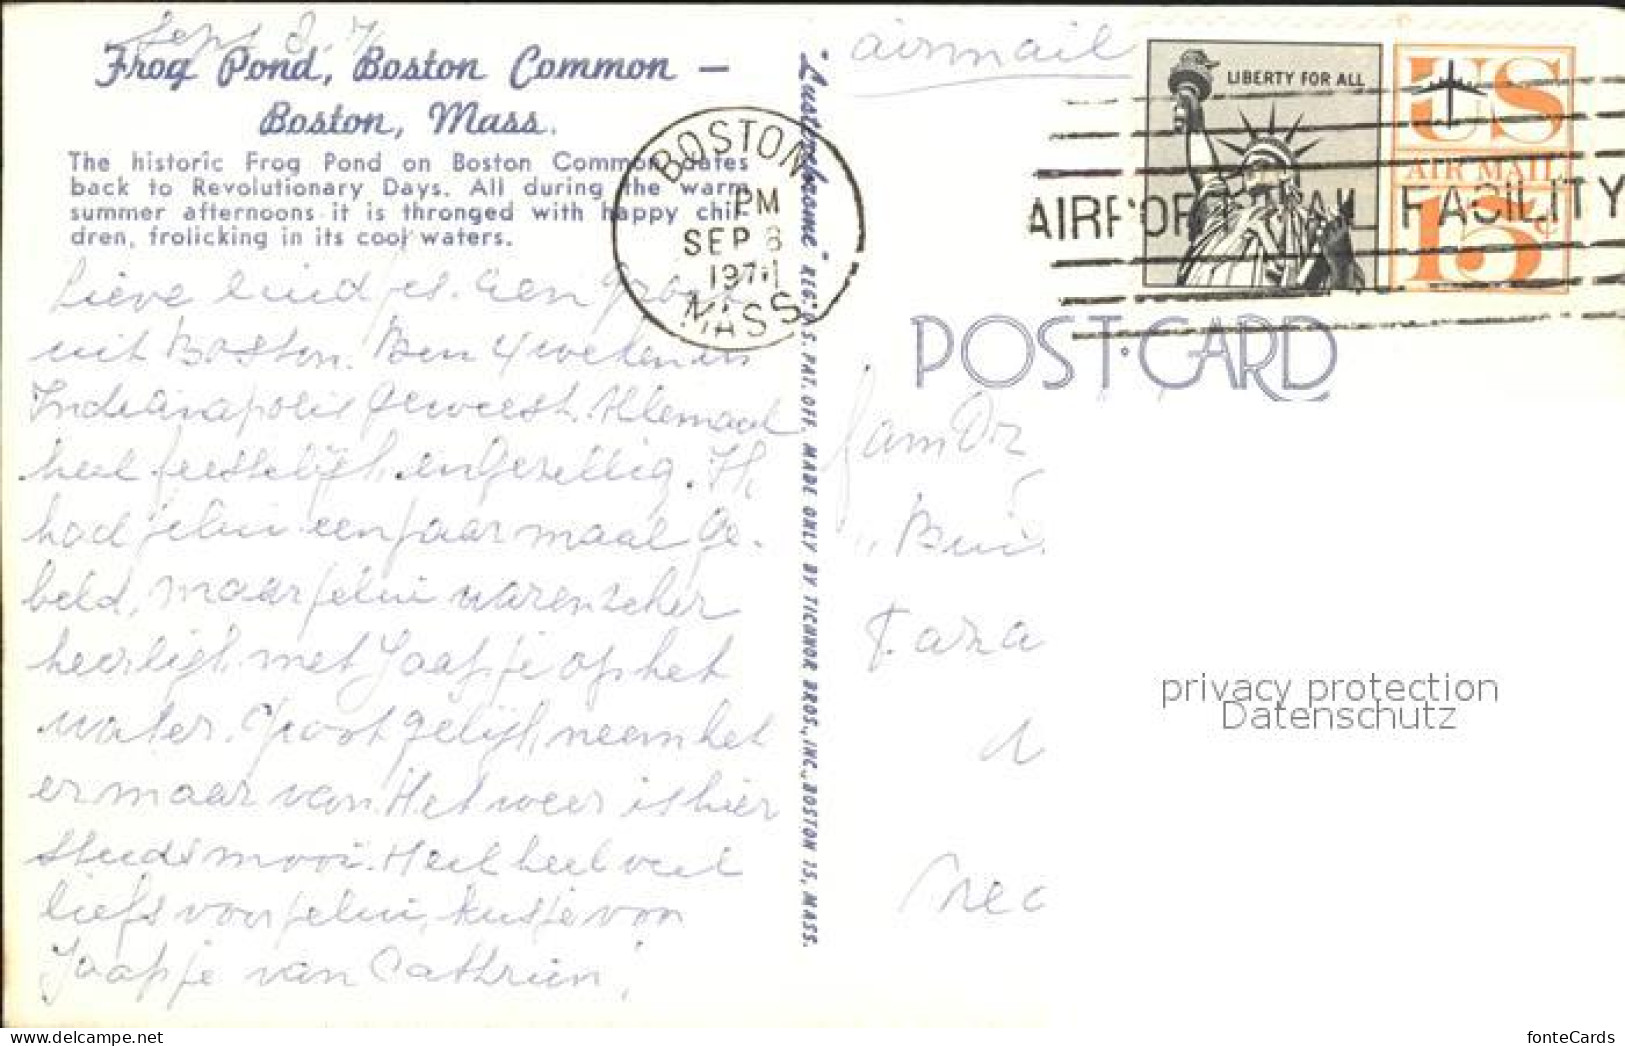 Frog Pond, Boston Common —
Boston, Mass.
The historic Frog Pond on Boston Common dates
back to Revolutionary Days. All during the warm
summer afternoons it is thronged with happy chil-
dren, frolicking in its cool waters.
Lieve Een
uit Boston. Ben 4 weken in
Indianapolis geweest. Allemaal
heel feestelijk en gezellig. Ik
had jelui een paar maal ge-
beld, maar jelui waren zeker
heerlijk met Jaapje op het
water. Groot gelijk, neem het
er maar van. Het weer is hier
steeds mooi. Heel heel veel
liefs voor jelui, kusje voor
Jaapje van Cathrien,
"Lusterchrome" REG. U.S. PAT. OFF. MADE ONLY BY TICHNOR BROS., INC., BOSTON 15, MASS.
airmail
BOSTON
PM
SEP 8
1971
MASS
LIBERTY FOR ALL
US
AIR MAIL
15c
AIRPORT MAIL FACILITY
POST CARD
fam
privacy protection
Datenschutz
www.delcampe.net
fonteCards